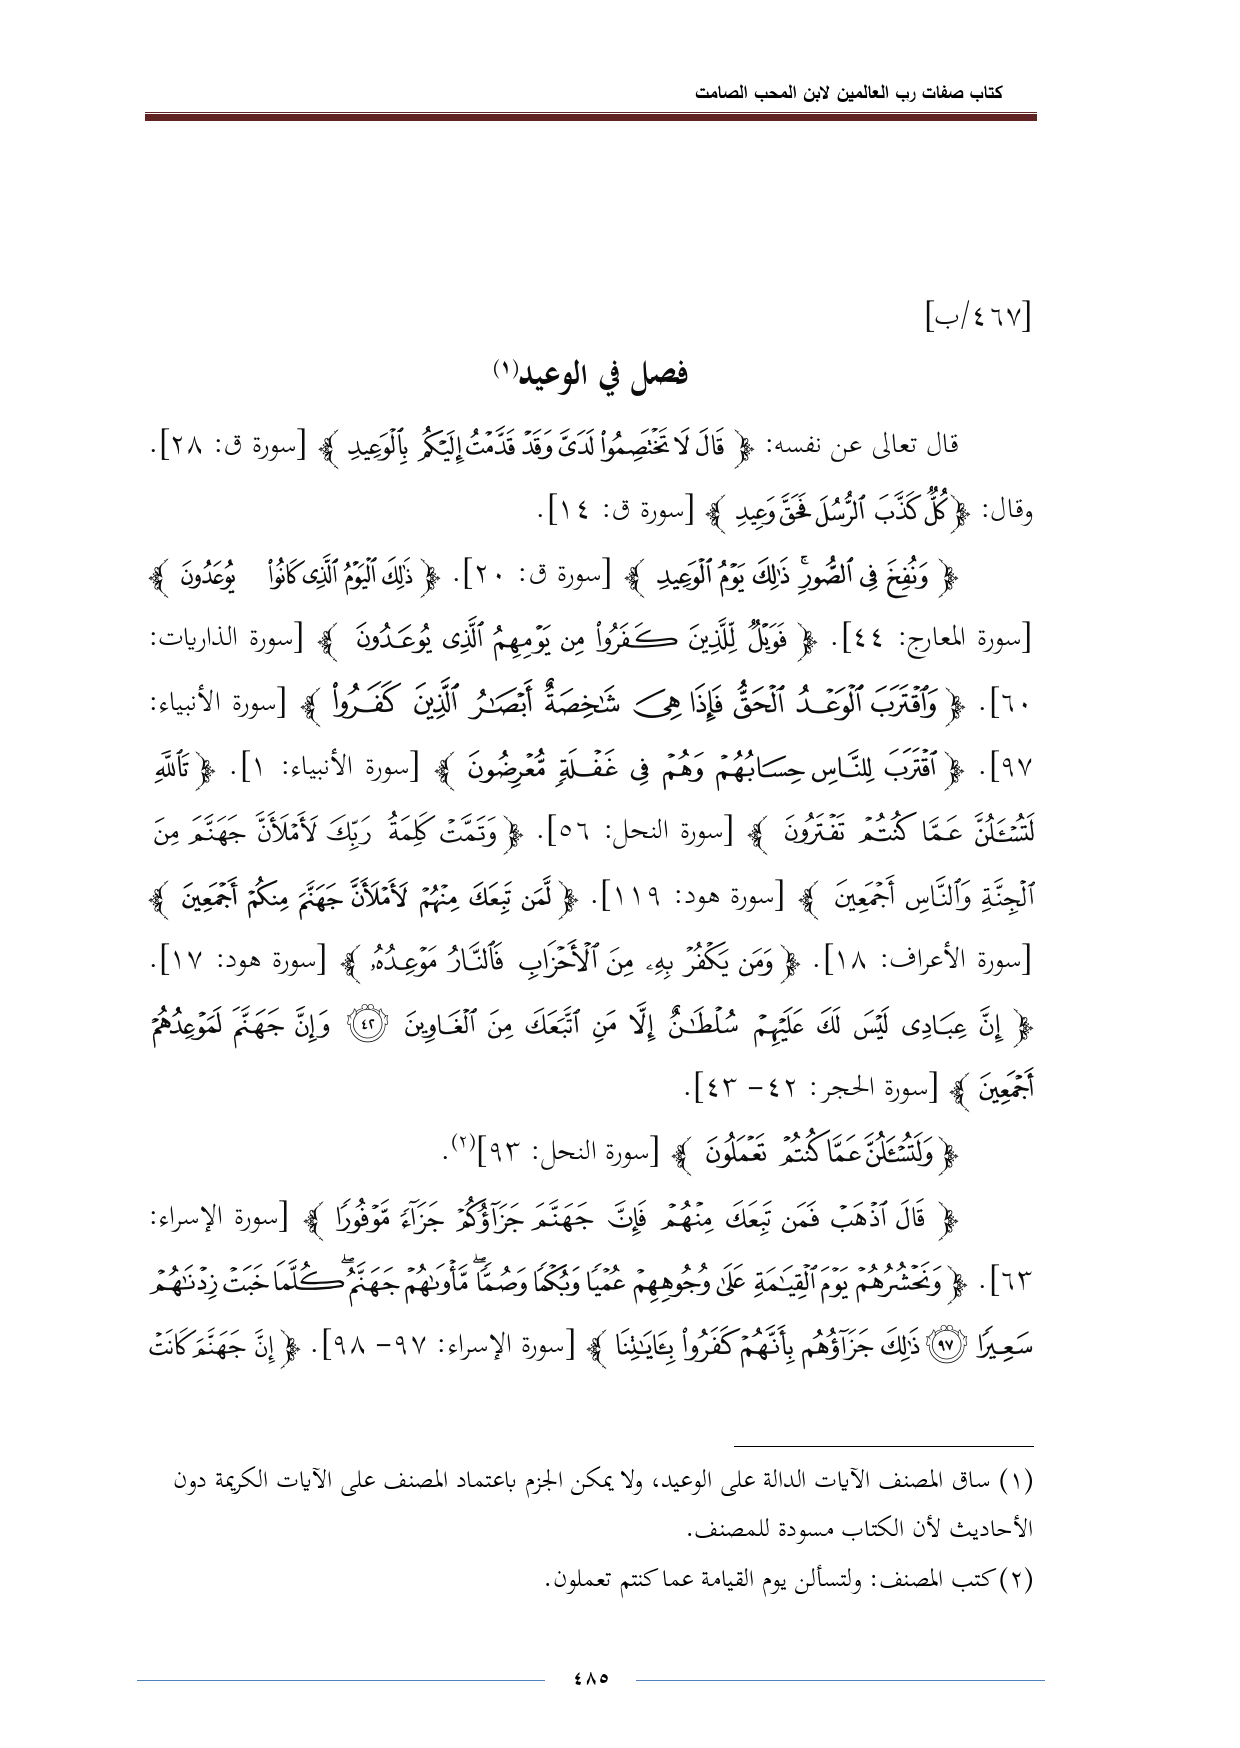 كتاب صفات رب العالمين لابن المحب الصامت
[٤٦٧/ب]
فصل في الوعيد(١)
قال تعالى عن نفسه: ﴿ قَالَ لَا تَخْتَصِمُوا۟ لَدَىَّ وَقَدْ قَدَّمْتُ إِلَيْكُم بِٱلْوَعِيدِ ﴾ [سورة ق: ٢٨].
وقال: ﴿كُلٌّ كَذَّبَ ٱلرُّسُلَ فَحَقَّ وَعِيدِ ﴾ [سورة ق: ١٤].
﴿ وَنُفِخَ فِى ٱلصُّورِ ۚ ذَٰلِكَ يَوْمُ ٱلْوَعِيدِ ﴾ [سورة ق: ٢٠]. ﴿ ذَٰلِكَ ٱلْيَوْمُ ٱلَّذِى كَانُوا۟ يُوعَدُونَ ﴾
[سورة المعارج: ٤٤]. ﴿ فَوَيْلٌ لِّلَّذِينَ كَفَرُوا۟ مِن يَوْمِهِمُ ٱلَّذِى يُوعَدُونَ ﴾ [سورة الذاريات:
٦٠]. ﴿ وَٱقْتَرَبَ ٱلْوَعْدُ ٱلْحَقُّ فَإِذَا هِىَ شَٰخِصَةٌ أَبْصَٰرُ ٱلَّذِينَ كَفَرُوا۟ ﴾ [سورة الأنبياء:
٩٧]. ﴿ ٱقْتَرَبَ لِلنَّاسِ حِسَابُهُمْ وَهُمْ فِى غَفْلَةٍ مُّعْرِضُونَ ﴾ [سورة الأنبياء: ١]. ﴿ تَٱللَّهِ
لَتُسْـَٔلُنَّ عَمَّا كُنتُمْ تَفْتَرُونَ ﴾ [سورة النحل: ٥٦]. ﴿ وَتَمَّتْ كَلِمَةُ رَبِّكَ لَأَمْلَأَنَّ جَهَنَّمَ مِنَ
ٱلْجِنَّةِ وَٱلنَّاسِ أَجْمَعِينَ ﴾ [سورة هود: ١١٩]. ﴿ لَّمَن تَبِعَكَ مِنْهُمْ لَأَمْلَأَنَّ جَهَنَّمَ مِنكُمْ أَجْمَعِينَ ﴾
[سورة الأعراف: ١٨]. ﴿ وَمَن يَكْفُرْ بِهِۦ مِنَ ٱلْأَحْزَابِ فَٱلنَّارُ مَوْعِدُهُۥ ﴾ [سورة هود: ١٧].
﴿ إِنَّ عِبَادِى لَيْسَ لَكَ عَلَيْهِمْ سُلْطَٰنٌ إِلَّا مَنِ ٱتَّبَعَكَ مِنَ ٱلْغَاوِينَ ٤٢ وَإِنَّ جَهَنَّمَ لَمَوْعِدُهُمْ
أَجْمَعِينَ ﴾ [سورة الحجر: ٤٢- ٤٣].
﴿ وَلَتُسْـَٔلُنَّ عَمَّا كُنتُمْ تَعْمَلُونَ ﴾ [سورة النحل: ٩٣](٢).
﴿ قَالَ ٱذْهَبْ فَمَن تَبِعَكَ مِنْهُمْ فَإِنَّ جَهَنَّمَ جَزَآؤُكُمْ جَزَآءً مَّوْفُورًا ﴾ [سورة الإسراء:
٦٣]. ﴿ وَنَحْشُرُهُمْ يَوْمَ ٱلْقِيَٰمَةِ عَلَىٰ وُجُوهِهِمْ عُمْيًا وَبُكْمًا وَصُمًّا ۖ مَّأْوَىٰهُمْ جَهَنَّمُ ۖ كُلَّمَا خَبَتْ زِدْنَٰهُمْ
سَعِيرًا ٩٧ ذَٰلِكَ جَزَآؤُهُم بِأَنَّهُمْ كَفَرُوا۟ بِـَٔايَٰتِنَا ﴾ [سورة الإسراء: ٩٧- ٩٨]. ﴿ إِنَّ جَهَنَّمَ كَانَتْ
(١) ساق المصنف الآيات الدالة على الوعيد، ولا يمكن الجزم باعتماد المصنف على الآيات الكريمة دون
الأحاديث لأن الكتاب مسودة للمصنف.
(٢) كتب المصنف: ولتسألن يوم القيامة عما كنتم تعملون.
٤٨٥